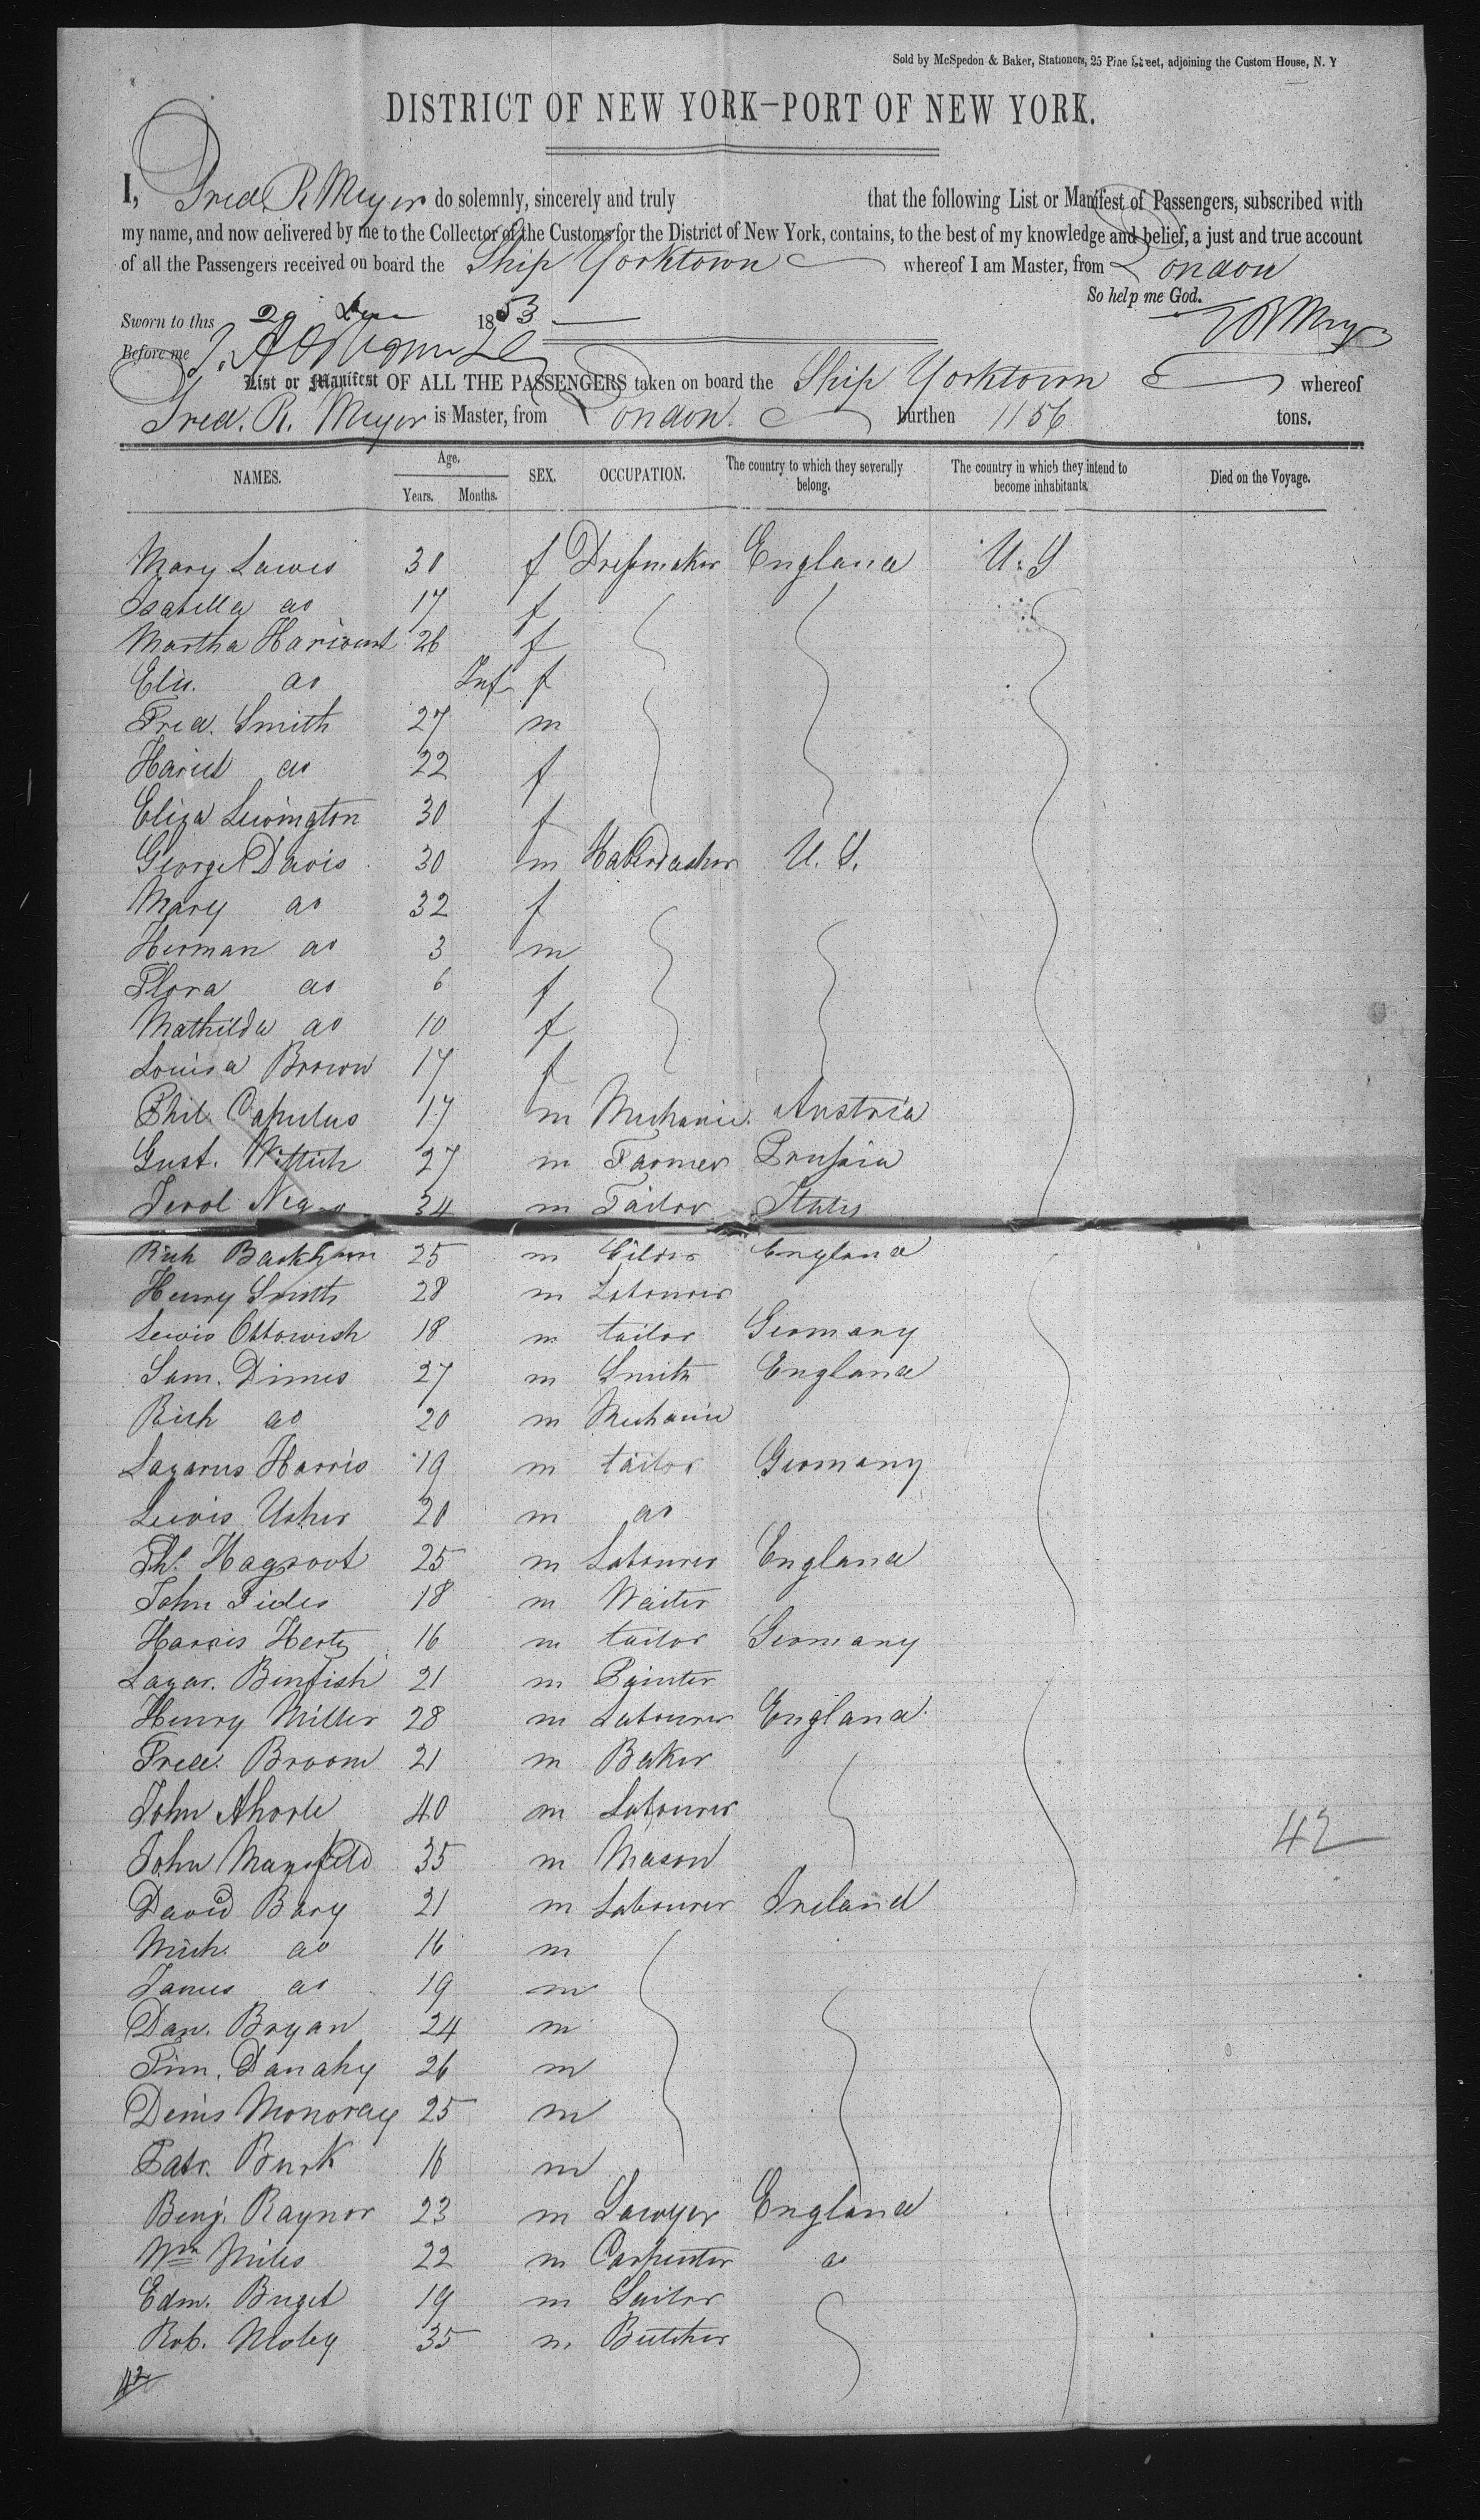 Sold by McSpedon & Baker, Stationers, 25 Pine Street, adjoining the Custom House, N. Y
DISTRICT OF NEW YORK—PORT OF NEW YORK.
I, Fred. R Meyer do solemnly, sincerely and truly that the following List or Manifest of Passengers, subscribed with
my name, and now delivered by me to the Collector of the Customs for the District of New York, contains, to the best of my knowledge and belief, a just and true account
of all the Passengers received on board the Ship Yorktown whereof I am Master, from London
So help me God.
Sworn to this 29 1853
Before me
List or Manifest OF ALL THE PASSENGERS taken on board the Ship Yorktown whereof
Fred. R. Meyer is Master, from London. burthen 1156 tons.
NAMES. Age. Years. Months. SEX. OCCUPATION. The country to which they severally belong. The country in which they intend to become inhabitants. Died on the Voyage.
Mary Lawes 30 f Dressmaker England U. S
Isabella do 17 f
Martha Harcourt 26 f
Eliz. do Inf f
Fred. Smith 27 m
Hariet do 22 f
Eliza Lewington 30 f
George Davis 30 m Haberdasher U. S.
Mary do 32 f
Herman do 3 m
Flora do 6 f
Mathilda do 10 f
Louisa Brown 17 f
Phil. Capulus 17 m Mechanic. Austria
Gust. Wittich 27 m Farmer Prussia
34 m Tailor States
Rich Backham 25 m Gilder England
Henry Smith 28 m Labourer
Lewis Ottowish 18 m tailor Germany
Sam. Dimes 27 m Smith England
Rich do 20 m Mechanic
Lazarus Harris 19 m tailor Germany
Lewis Usher 20 m do
Th. Hagroot 25 m Labourer England
John Fides 18 m Waiter
Harris Hertz 16 m tailor Germany
Lazar. Benfish 21 m Painter
Henry Miller 28 m Labourer England
Fred. Broom 21 m Baker
John Ahorle 40 m Labourer
42
John Mansfield 35 m Mason
David Bary 21 m Labourer Ireland
Mich. do 16 m
James do 19 m
Dan. Bryan 24 m
Tim. Danahy 26 m
Denis Monoray 25 m
Patr. Burk 16 m
Benj. Raynor 23 m Sawyer England
Wm Miles 22 m Carpenter do
Edm. Buget 19 m Sailor
Rob. Moley 35 m Butcher
42